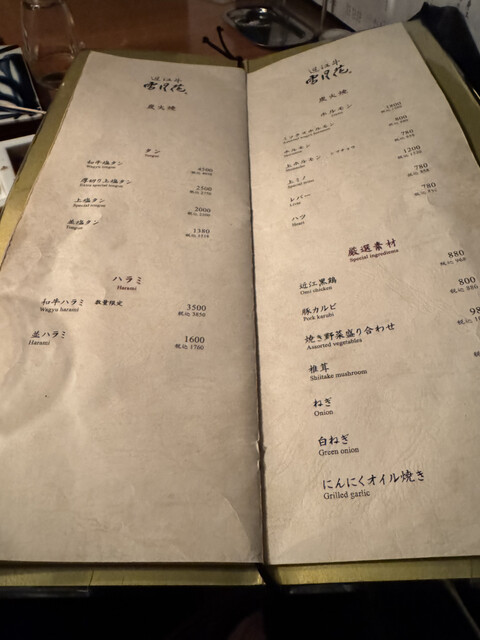 近江牛
雪月花
炭火焼
タン
Tongue
和牛塩タン
Wagyu tongue
4500
厚切り上塩タン
Extra special tongue
2500
上塩タン
Special tongue
2000
並塩タン
Tongue
1380
ハラミ
Harami
和牛ハラミ 数量限定
Wagyu harami
3500
税込 3850
並ハラミ
Harami
1600
税込 1760
近江牛
雪月花
炭火焼
ホルモン
ミックスホルモン
1400
ホルモン
800
上ホルモン
780
上ミノ
1200
レバー
Liver
780
ハツ
Heart
780
厳選素材
Special ingredients
近江黒鶏
Omi chicken
880
税込 968
豚カルビ
Pork karubi
800
税込 880
焼き野菜盛り合わせ
Assorted vegetables
椎茸
Shiitake mushroom
ねぎ
Onion
白ねぎ
Green onion
にんにくオイル焼き
Grilled garlic